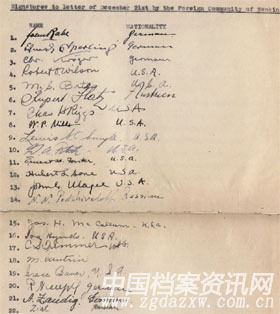 Signatures to letter of December 21st by the Foreign Community of Nankin
NAME NATIONALITY
1. John Rabe German
2. Eduard Sperling German
3. Chr. Kröger German
4. Robert O. Wilson U.S.A.
5. M. S. Bates U.S.A.
6. Rupert Hatz Austrian
7. Chas H Riggs U.S.A.
8. W. P. Mills U.S.A.
9. Lewis S. C. Smythe U.S.A.
10. U.S.A.
11. U.S.A.
12. Hubert L. Sone U.S.A.
13. John G. Magee U.S.A.
14. Russian
15. Jas. H. McCallum U.S.A.
16. Iva Hynds U.S.A.
17. C. S. Trimmer
18.
19. Grace Bauer, U.S.A.
20. R. Hempel German
21. A. Zautig German
22. Zial
中国档案资讯网
www.zgdazxw.com.cn